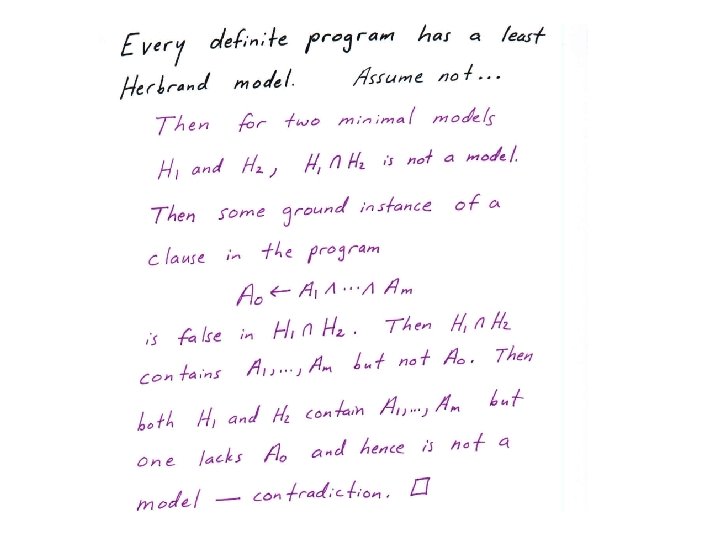 Every definite program has a least
Herbrand model. Assume not...
Then for two minimal models
H₁ and H₂, H₁ ∩ H₂ is not a model.
Then some ground instance of a
clause in the program
A₀ ← A₁ ∧ ··· ∧ Aₘ
is false in H₁ ∩ H₂. Then H₁ ∩ H₂
contains A₁,..., Aₘ but not A₀. Then
both H₁ and H₂ contain A₁,..., Aₘ but
one lacks A₀ and hence is not a
model — contradiction. □